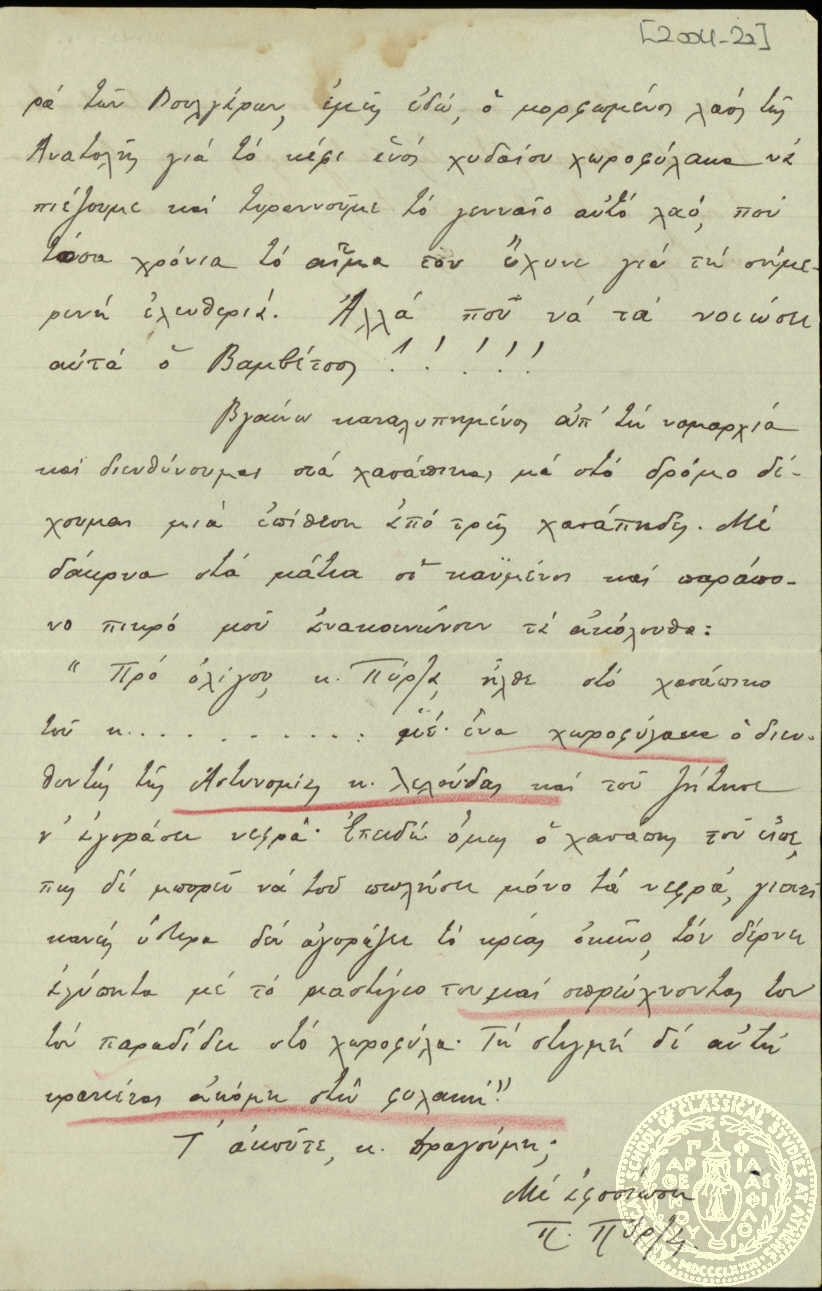 [2004-22]
ρά τῶν Βουλγάρων, ἐμεῖς ἐδῶ, ὁ μορφωμένος λαός τῆς
Ἀνατολῆς γιά τό κέφι ἑνός χυδαίου χωροφύλακα νά
πιέζουμε καί τυραννοῦμε τό γενναῖο αὐτό λαό, πού
τόσα χρόνια τό αἷμα του ἔχυνε γιά τή σημε-
ρινή ἐλευθεριά. Ἀλλά ποῦ νά τά νοιώσει
αὐτά ὁ Βαμβέτσος !!!!!
Βγαίνω καταλυπημένος ἀπ' τή νομαρχία
καί διευθύνουμαι στά χασάπικα, μά στό δρόμο δέ-
χουμαι μιά ἐπίθεση ἀπό τρεῖς χασάπηδες. Μέ
δάκρυα στά μάτια οἱ καϋμένοι καί παράπο-
νο πικρό μοῦ ἀνακοινώνουν τά ἀκόλουθα:
" Πρό ὀλίγου, κ. Πύρζα, ἦλθε στό χασάπικο
τοῦ κ. . . . . . . . . . . . μέ ἕνα χωροφύλακα ὁ διευ-
θυντής τῆς Ἀστυνομίας κ. Λελούδας καί τοῦ ζήτησε
ν' ἀγοράσει νεφρά. Ἐπειδή ὅμως ὁ χασάπης τοῦ εἶπε,
πώς δέ μπορεῖ νά τοῦ πωλήσει μόνο τά νεφρά, γιατί
κανείς ὕστερα δέν ἀγοράζει τό κρέας ἐκεῖνο, τόν δέρνει
ἀλύπητα μέ τό μαστίγιο του καί σπρώχνοντας τον
τόν παραδίδει στό χωροφύλα. Τή στιγμή δέ αὐτή
κρατιέται ἀκόμη στή φυλακή"!
Τ' ἀκοῦτε, κ. Δραγούμη;
Μέ ἀφοσίωση
Π. Πύρζας.
SCHOOL OF CLASSICAL STUDIES AT ATHENS
MDCCCLXXXI